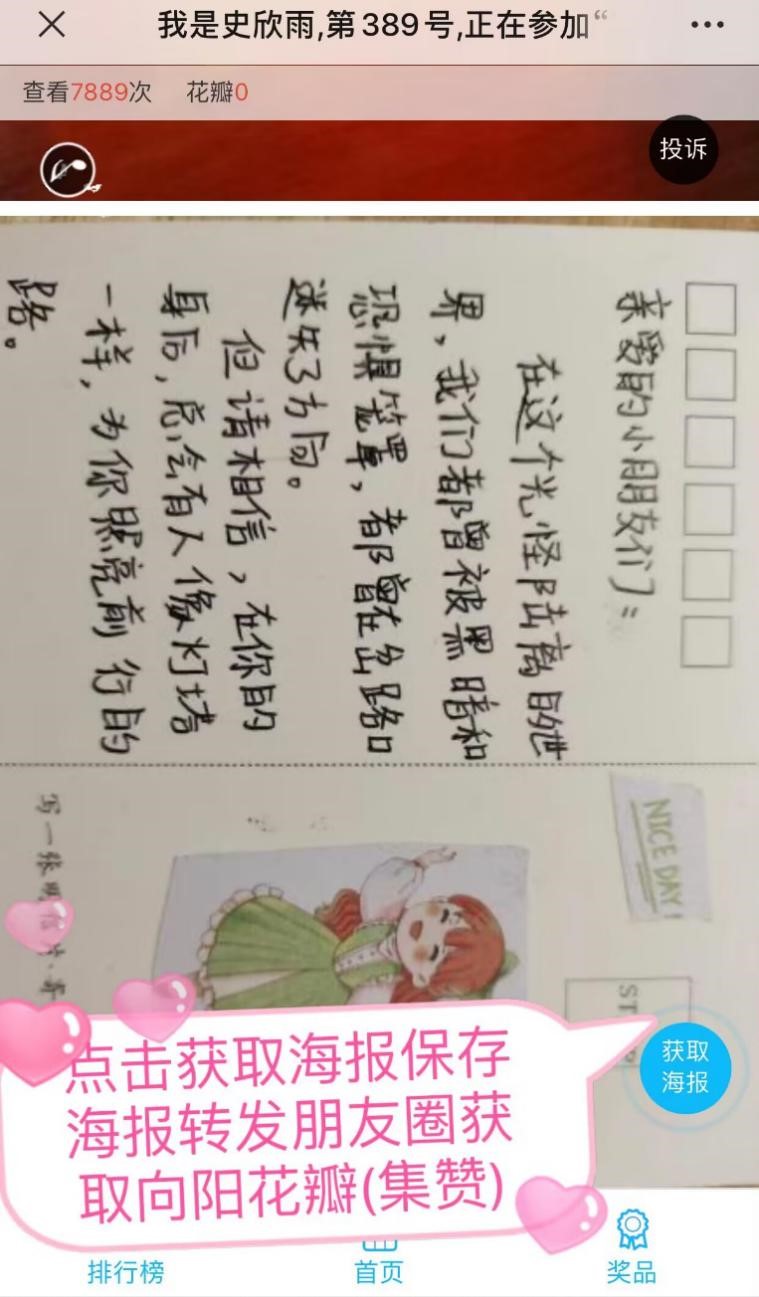 我是史欣雨,第389号,正在参加“
查看7889次 花瓣0
投诉
亲爱的小朋友们：
在这个光怪陆离的世
界，我们都曾被黑暗和
恐惧笼罩，都曾在岔路口
迷失了方向。
但请相信，在你的
身后，总会有人像灯塔
一样，为你照亮前行的
路。
NICE DAY!
写一张明信片·寄
ST
获取
海报
点击获取海报保存
海报转发朋友圈获
取向阳花瓣(集赞)
排行榜 首页 奖品